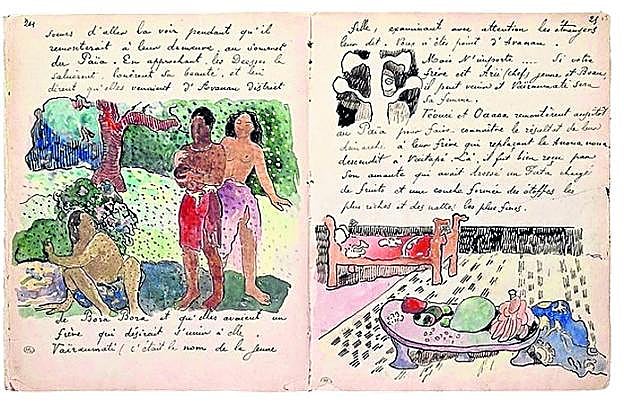 24
soeurs d'aller la voir pendant qu'il
remonterait à leur demeure, au sommet
du Païa. En approchant, les Déesses la
saluèrent, louèrent sa beauté, et lui
dirent qu'elles venaient d'Avanau district
de Bora Bora et qu'elles avaient un
frère qui désirait s'unir à elle
Vaïraumati (c'était le nom de la jeune
25
fille, examinant avec attention les étrangers
leur dit Vous n'êtes point d'Avanau.
Mais N'importe .... Si votre
frère est Arii (chef) jeune et Beau,
il peut venir et Vaïraumati sera
Sa femme.
Téouri et Oaaoa remontèrent aussitôt
au Païa pour faire connaître le résultat de leur
démarche à leur frère qui replaçant
descendit à Vaïtapé Là, il fut bien reçu par
Son amante qui avait dressé un Fata chargé
de fruits et une couche formée des étoffes les
plus riches et des nattes les plus fines.